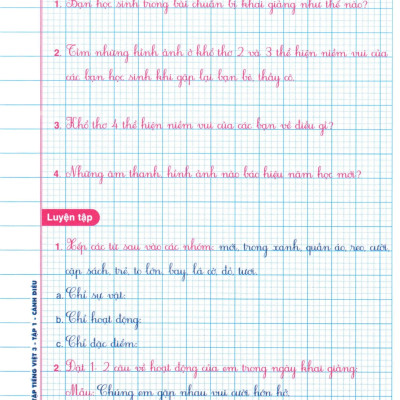 1. Bạn học sinh trong bài chuẩn bị khai giảng như thế nào?
2. Tìm những hình ảnh ở khổ thơ 2 và 3 thể hiện niềm vui của
các bạn học sinh khi gặp lại bạn bè, thầy cô.
3. Khổ thơ 4 thể hiện niềm vui của các bạn về điều gì?
4. Những âm thanh, hình ảnh nào báo hiệu năm học mới?
Luyện tập
1. Xếp các từ sau vào các nhóm: mới, trong xanh, quần áo, reo, cười,
cặp sách, trẻ, to lớn, bay, lá cờ, đỏ, tươi.
a. Chỉ sự vật:
b. Chỉ hoạt động:
c. Chỉ đặc điểm:
2. Đặt 1-2 câu về hoạt động của em trong ngày khai giảng:
Mẫu: Chúng em gặp nhau, vui cười hớn hở.
TẬP TIẾNG VIỆT 3 - TẬP 1 - CÁNH DIỀU